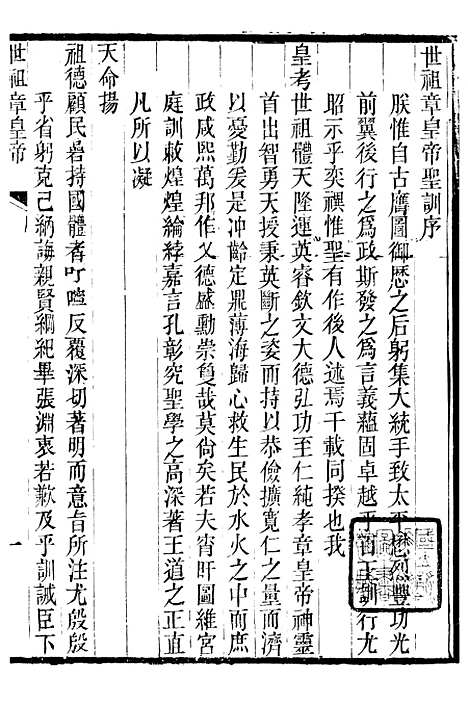 世祖章皇帝聖訓序
朕惟自古膺圖御歷之后躬集大統手致太平懋烈豐功光
前翼後行之爲政斯發之爲言義蘊固卓越乎百王訓行尤
昭示乎奕禩惟聖有作後人述焉千載同揆也我
皇考世祖體天隆運英睿欽文大德弘功至仁純孝章皇帝神靈
首出智勇天授秉英斷之姿而持以恭儉擴寬仁之量而濟
以憂勤爰是冲齡定鼎薄海歸心救生民於水火之中而庶
政咸熙萬邦作乂德盛勳崇敻哉莫尙矣若夫宵旰圖維宮
庭訓敕煌煌綸綍嘉言孔彰究聖學之高深著王道之正直
凡所以凝
天命揚
祖德顧民碞持國體者叮嚀反覆深切著明而意旨所注尤殷殷
乎省躬克己納誨親賢綱紀畢張淵衷若歉及乎訓誡臣下
世祖章皇帝
一